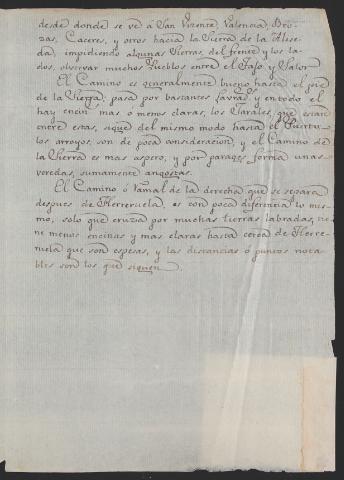 desde donde se vé á San Vizente, Valencia, Bro-
zas, Caceres, y otros hacia la Sierra de la Alise-
da, impidiendo algunas Sierras, del frente y los la-
dos, observar muchos Pueblos entre el Tajo y Salor
El Camino es generalmente bueno hasta el pie
de la Sierra; pasa por bastantes Jarales y en todo el
hay encin.s mas o menos claras, los Jarales, que estan
entre estas, sigue del mismo modo hasta el Puerto
los arroyos, son de poca consideracion, y el Camino de
la Sierra es mas aspero, y por parages forma unas
veredas, sumamente angostas.
El Camino ó Ramal de la derecha que se separa
despues de Herreruela, es con poca diferencia lo mis-
mo, solo que cruza por muchas tierras labradas, tie-
ne menos encinas y mas claras hasta cerca de Herre-
ruela que son espesas, y las distancias ó puntos nota-
bles son los que siguen